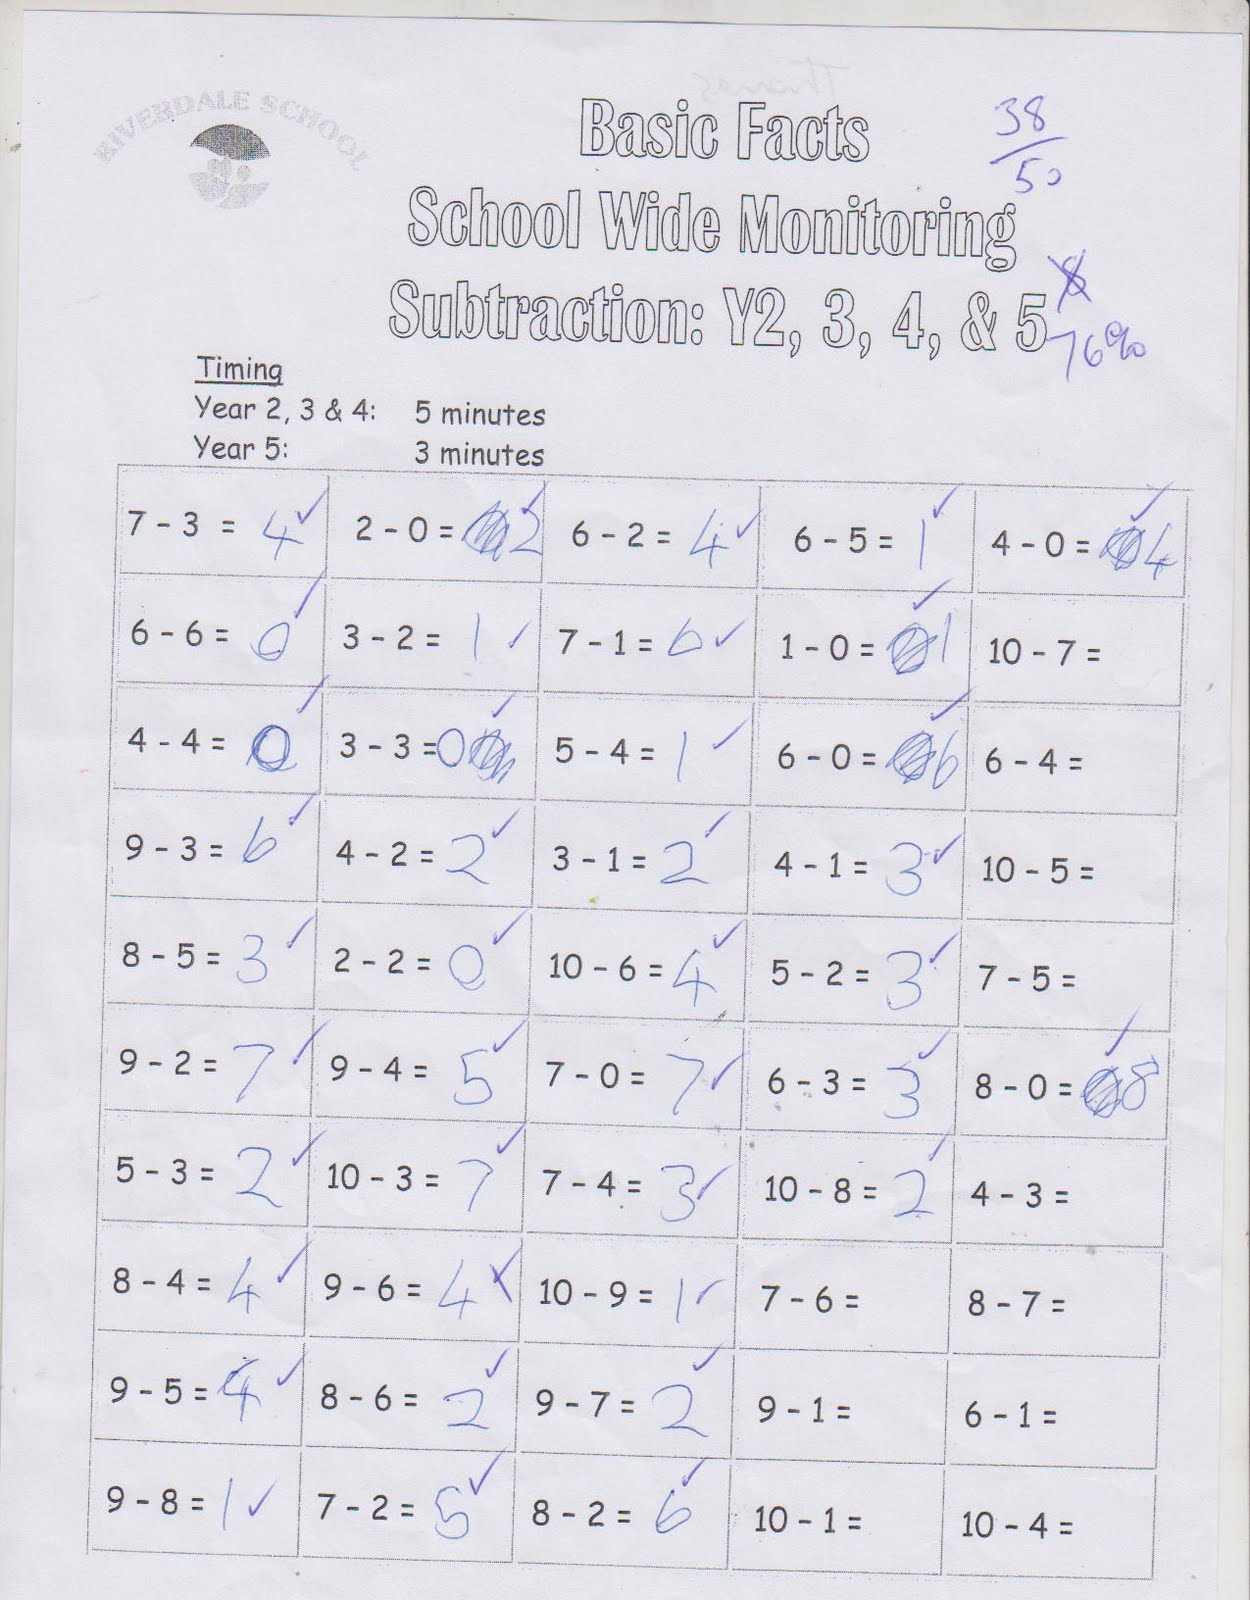 RIVERDALE SCHOOL
Basic Facts
38/50
School Wide Monitoring
Subtraction: Y2, 3, 4, & 5
76%
Timing
Year 2, 3 & 4: 5 minutes
Year 5: 3 minutes
7 - 3 = 4 2 - 0 = 2 6 - 2 = 4 6 - 5 = 1 4 - 0 = 4
6 - 6 = 0 3 - 2 = 1 7 - 1 = 6 1 - 0 = 1 10 - 7 =
4 - 4 = 0 3 - 3 = 0 5 - 4 = 1 6 - 0 = 6 6 - 4 =
9 - 3 = 6 4 - 2 = 2 3 - 1 = 2 4 - 1 = 3 10 - 5 =
8 - 5 = 3 2 - 2 = 0 10 - 6 = 4 5 - 2 = 3 7 - 5 =
9 - 2 = 7 9 - 4 = 5 7 - 0 = 7 6 - 3 = 3 8 - 0 = 8
5 - 3 = 2 10 - 3 = 7 7 - 4 = 3 10 - 8 = 2 4 - 3 =
8 - 4 = 4 9 - 6 = 4 10 - 9 = 1 7 - 6 = 8 - 7 =
9 - 5 = 4 8 - 6 = 2 9 - 7 = 2 9 - 1 = 6 - 1 =
9 - 8 = 1 7 - 2 = 5 8 - 2 = 6 10 - 1 = 10 - 4 =